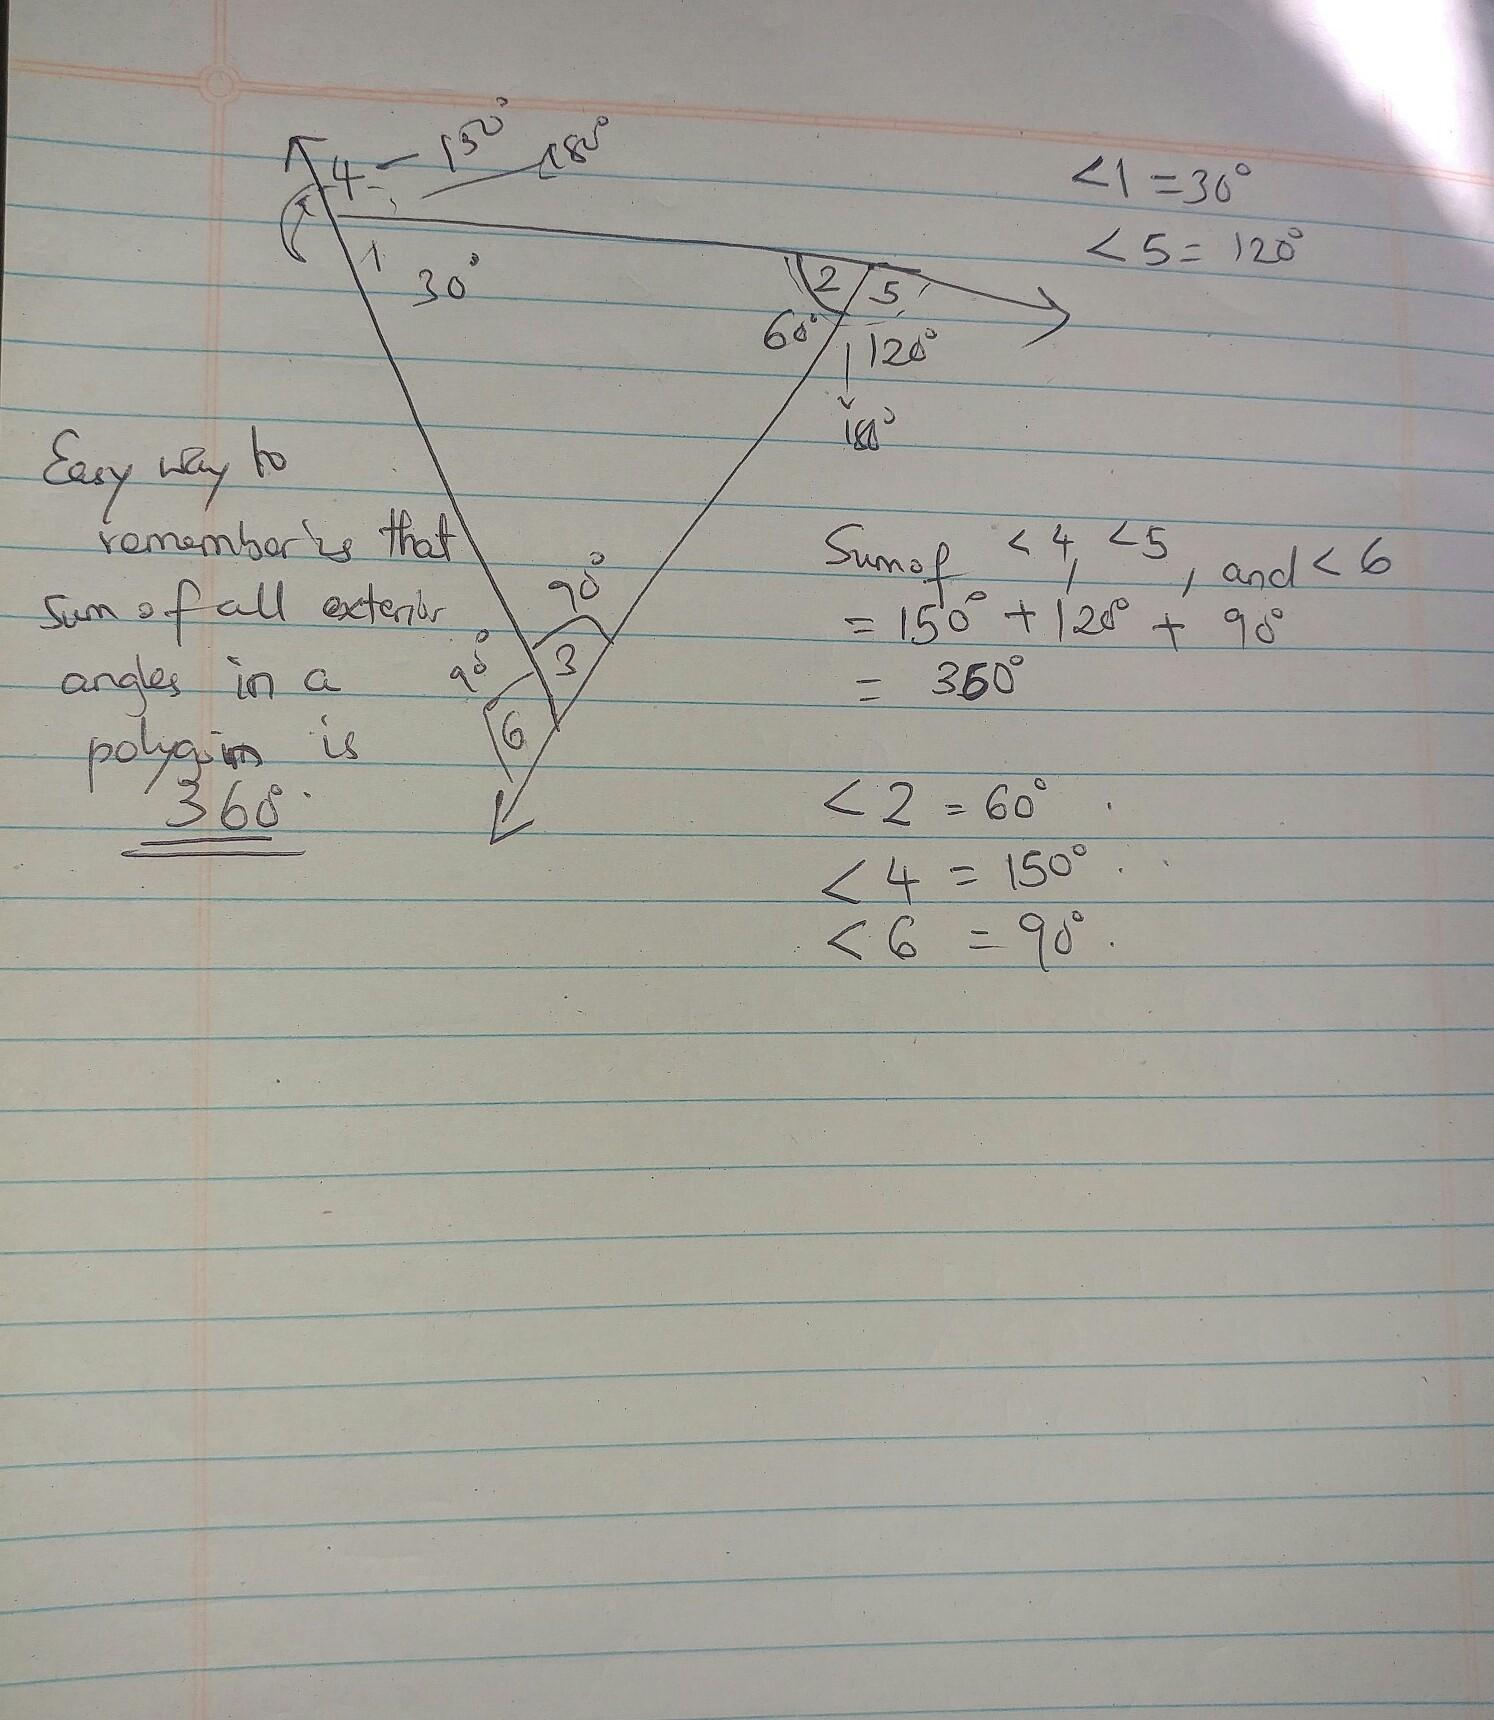 4 - 150°
180°
<1 = 30°
<5 = 120°
1
30°
2
5
60°
120°
180°
Easy way to
remember is that
sum of all exterior
angles in a
polygon is
360°
90°
3
90°
6
Sum of <4, <5, and <6
= 150° + 120° + 90°
= 360°
<2 = 60°
<4 = 150°
<6 = 90°